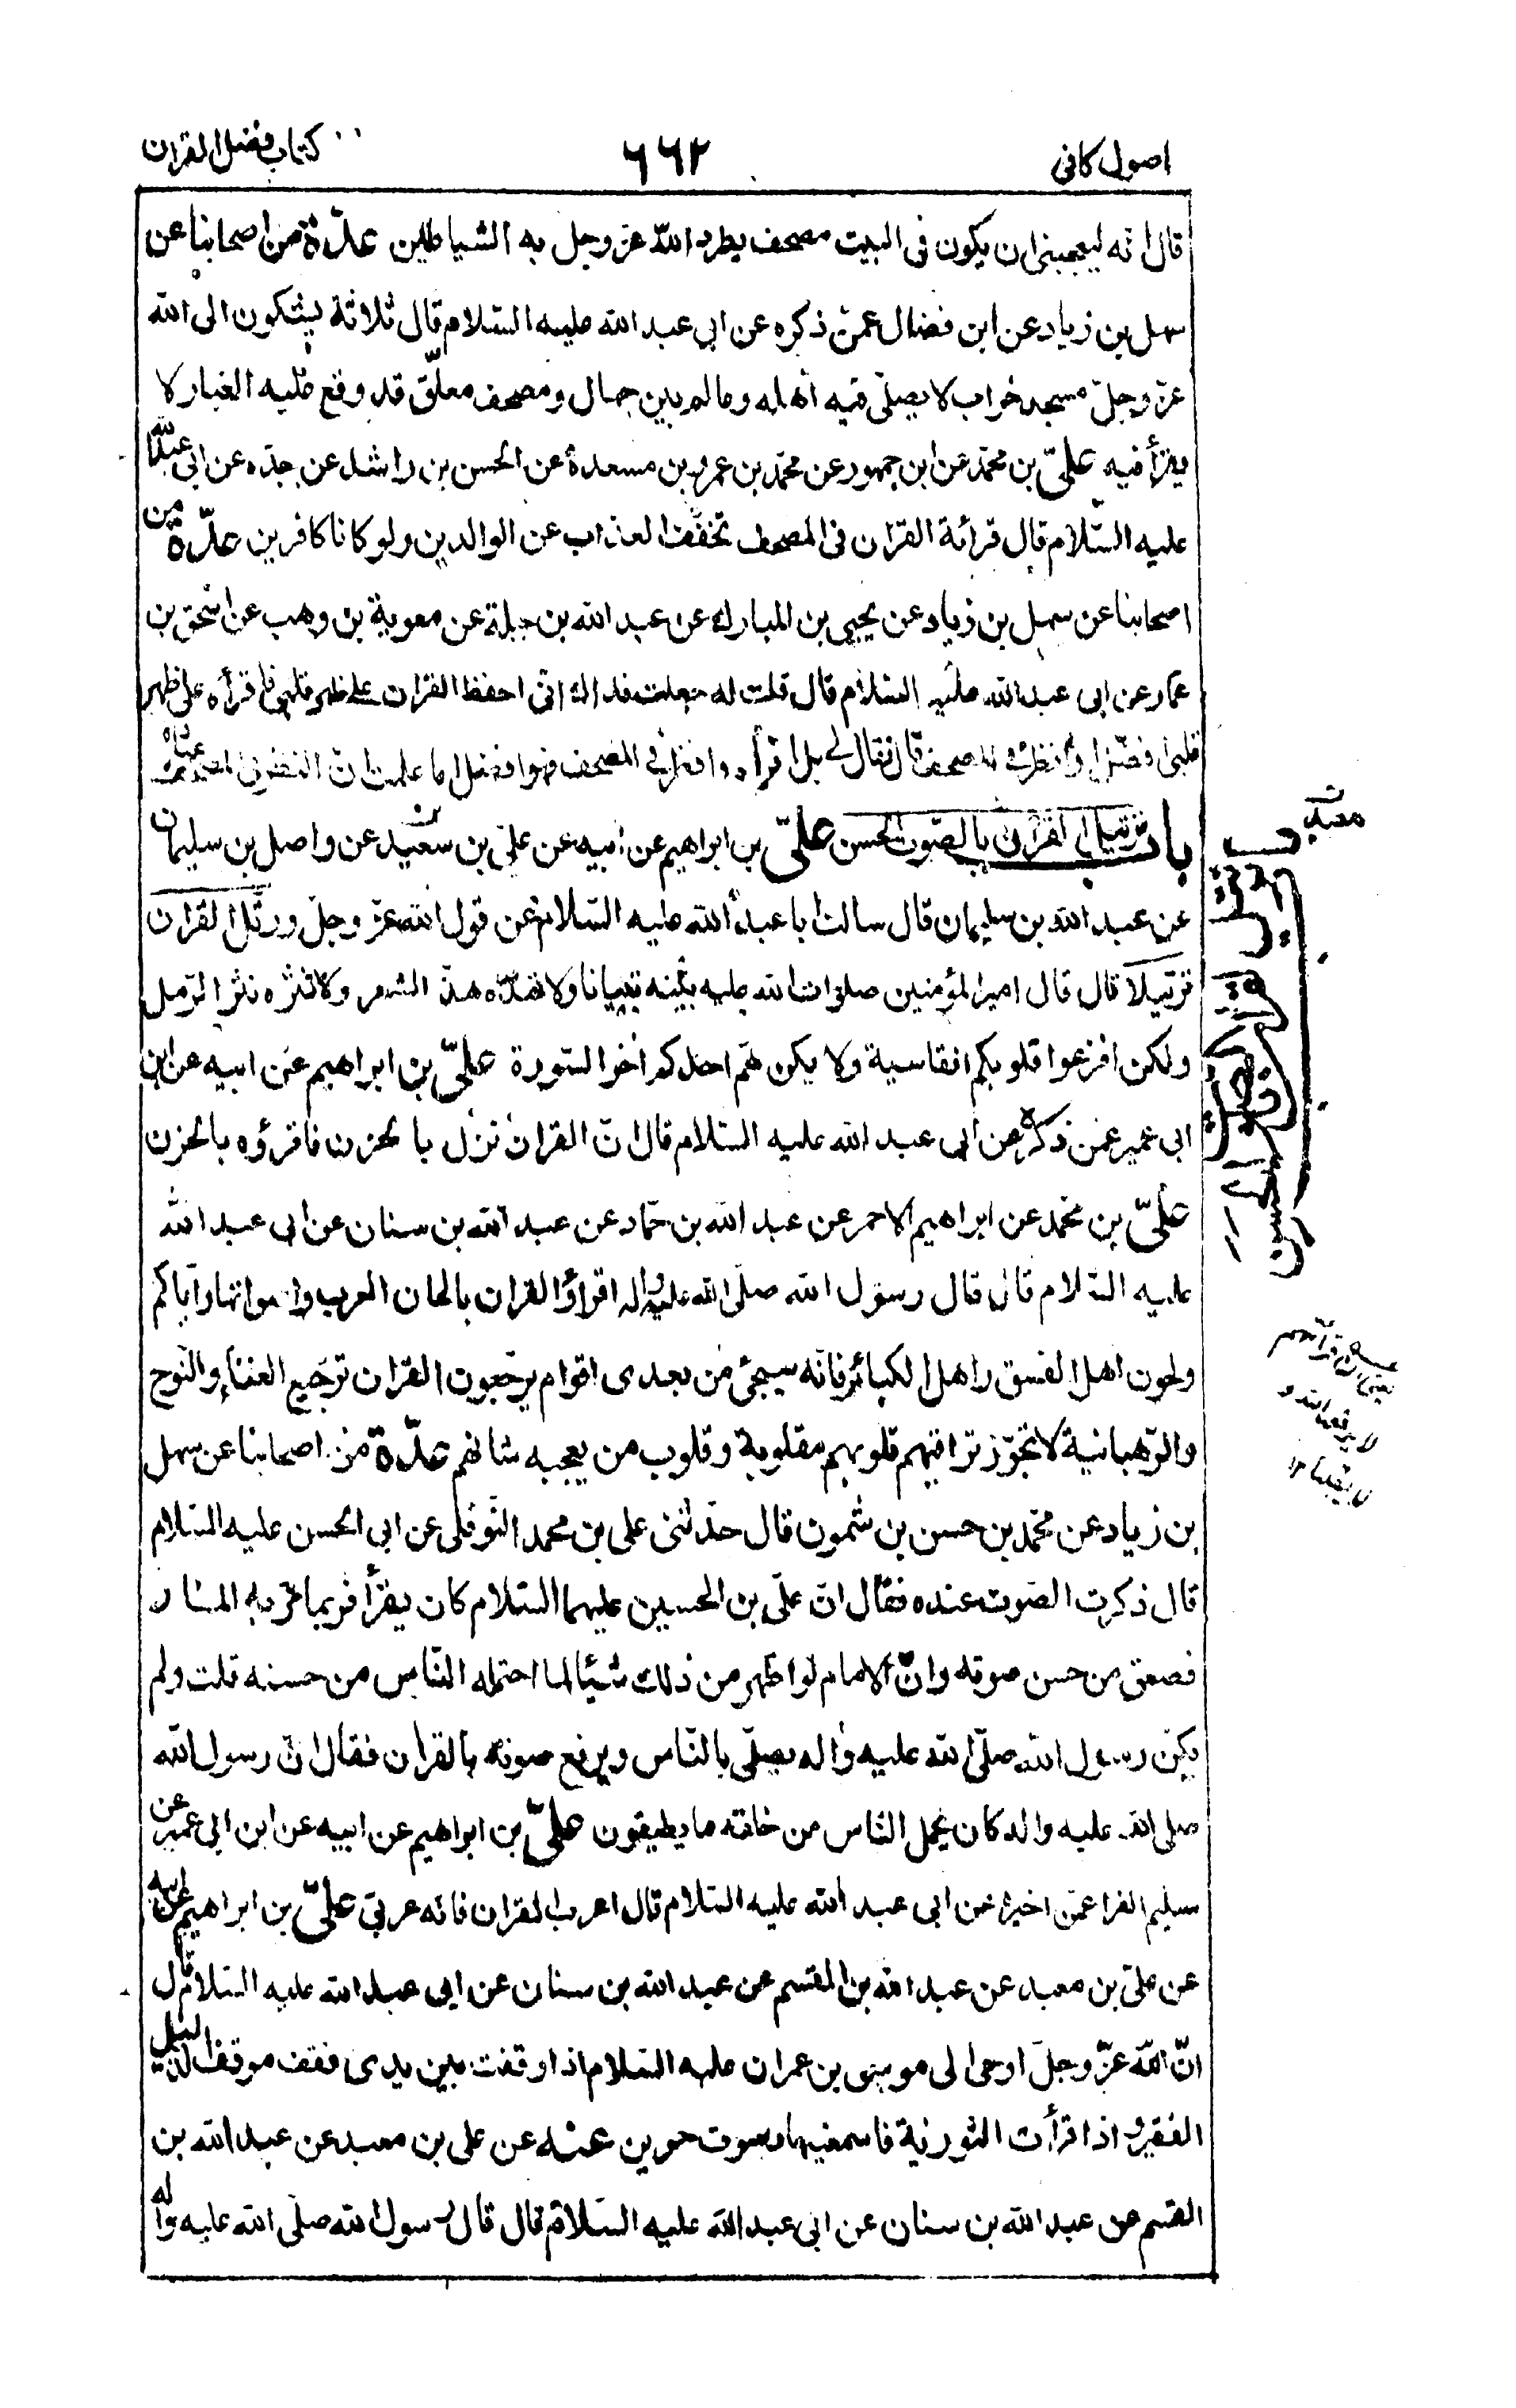 اصول کافی
٦٦٢
کتاب فضل القران
قال انه ليعجبنى ان يكون فى البيت مصحف يطرد الله عز وجل به الشياطين عدّة من اصحابنا عن
سهل بن زياد عن ابن فضال عمّن ذكره عن ابى عبد الله عليه السّلام قال ثلاثة يشكون الى الله
عزّ وجلّ مسجد خراب لا يصلّى فيه اهله وعالم بين جهال ومصحف معلّق قد وقع عليه الغبار لا
يقرأ فيه علىّ بن محمّد عن ابن جمهور عن محمّد بن عمرو بن مسعدة عن الحسن بن راشد عن جدّه عن ابى عبد الله
عليه السّلام قال قرائة القران فى المصحف تخفّف العذاب عن الوالدين ولو كانا كافرين عدّة من
اصحابنا عن سهل بن زياد عن يحيى بن المبارك عن عبد الله بن جبلة عن معوية بن وهب عن اسحق بن
عمار عن ابى عبد الله عليه السّلام قال قلت له جعلت فداك انّى احفظ القران على ظهر قلبى فاقرأه على ظهر
قلبى افضل او أنظر فى المصحف قال فقال لى بل اقرأه وانظر فى المصحف فهو افضل اما علمت انّ النظر فى المصحف عبادة
باب ترتيل القران بالصّوت الحسن علىّ بن ابراهيم عن ابيه عن علىّ بن سعيد عن واصل بن سليمان
عن عبد الله بن سليمان قال سالت ابا عبد الله عليه السّلام عن قول الله عزّ وجلّ ورتّل القران
ترتيلا قال قال امير المؤمنين صلوات الله عليه بيّنه تبيانا ولا تهذّه هذّ الشعر ولا تنثره نثر الرّمل
ولكن افزعوا قلوبكم القاسية ولا يكن همّ احدكم اخر السّورة علىّ بن ابراهيم عن ابيه عن ابن
ابى عمير عمّن ذكره عن ابى عبد الله عليه السّلام قال انّ القران نزل بالحزن فاقرؤه بالحزن
علىّ بن محمد عن ابراهيم الاحمر عن عبد الله بن حمّاد عن عبد الله بن سنان عن ابى عبد الله
عليه السّلام قال قال رسول الله صلّى الله عليه واله اقرؤا القران بالحان العرب واصواتها واياكم
ولحون اهل الفسق واهل الكبائر فانّه سيجئ من بعدى اقوام يرجّعون القران ترجيع الغناء والنّوح
والرّهبانية لا تجوّز تراقيهم قلوبهم مقلوبة وقلوب من يعجبه شانهم عدّة من اصحابنا عن سهل
بن زياد عن محمّد بن حسن بن شمون قال حدّثنى على بن محمد النّوفلى عن ابى الحسن عليه السّلام
قال ذكرت الصّوت عنده فقال انّ علىّ بن الحسين عليهما السّلام كان يقرأ فربما مرّ به المار
فصعق من حسن صوته وانّ الامام لو اظهر من ذلك شيئا لما احتمله النّاس من حسنه قلت ولم
يكن رسول الله صلّى الله عليه واله يصلّى بالنّاس ويرفع صوته بالقران فقال انّ رسول الله
صلى الله عليه واله كان يحمل النّاس من خلفه ما يطيقون علىّ بن ابراهيم عن ابيه عن ابن ابى عمير عن
سليم الفرا عمّن اخبره عن ابى عبد الله عليه السّلام قال اعرب القران فانّه عربىّ علىّ بن ابراهيم عن ابيه
عن علىّ بن معبد عن عبد الله بن القسم عن عبد الله بن سنان عن ابى عبد الله عليه السّلام قال
انّ الله عزّ وجلّ اوحى الى موسى بن عمران عليه السّلام اذا وقفت بين يدى فقف موقف الذليل
الفقير واذا قرأت التورية فاسمعنيها بصوت حزين عنه عن على بن معبد عن عبد الله بن
القسم عن عبد الله بن سنان عن ابى عبد الله عليه السّلام قال قال رسول الله صلّى الله عليه واله
معبد